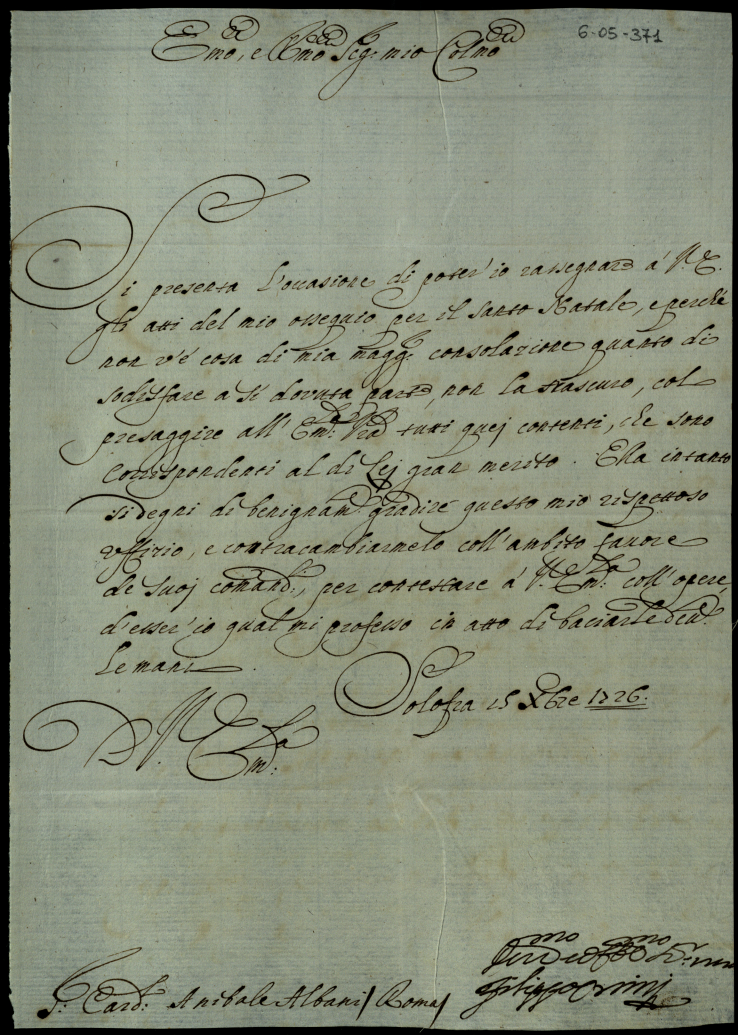 Emo, e Rmo Sig: mio Colmo
6-05-371
Si presenta l'occasione di poter'io rassegnare á V. E.
gli atti del mio ossequio per il santo Natale, e perche
non v'é cosa di mia magg: consolazione quanto di
sodisfare a sí dovuta parte, non la trascuro, col
presaggire all' Em: Vrã tutti quej contenti, che sono
corrispondenti al di lej gran merito. Ella intanto
si degni di benignam: gradire questo mio rispettoso
uffizio, e contracambiarmelo coll'ambito favore
de suoj comand:, per contestare á V. Em: coll'opere,
d'esser'io qual mi professo in atto di baciarle
le mani.
Solofra 15 Xbre 1726.
D. V. Em:
S: Card: Anibale Albani / Roma /
Filippo Orsini